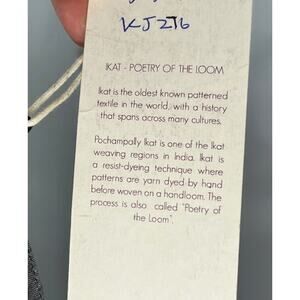 KJ216
IKAT - POETRY OF THE LOOM
Ikat is the oldest known patterned
textile in the world, with a history
that spans across many cultures.
Pochampally Ikat is one of the Ikat
weaving regions in India. Ikat is
a resist-dyeing technique where
patterns are yarn dyed by hand
before woven on a handloom. The
process is also called "Poetry of
the Loom".